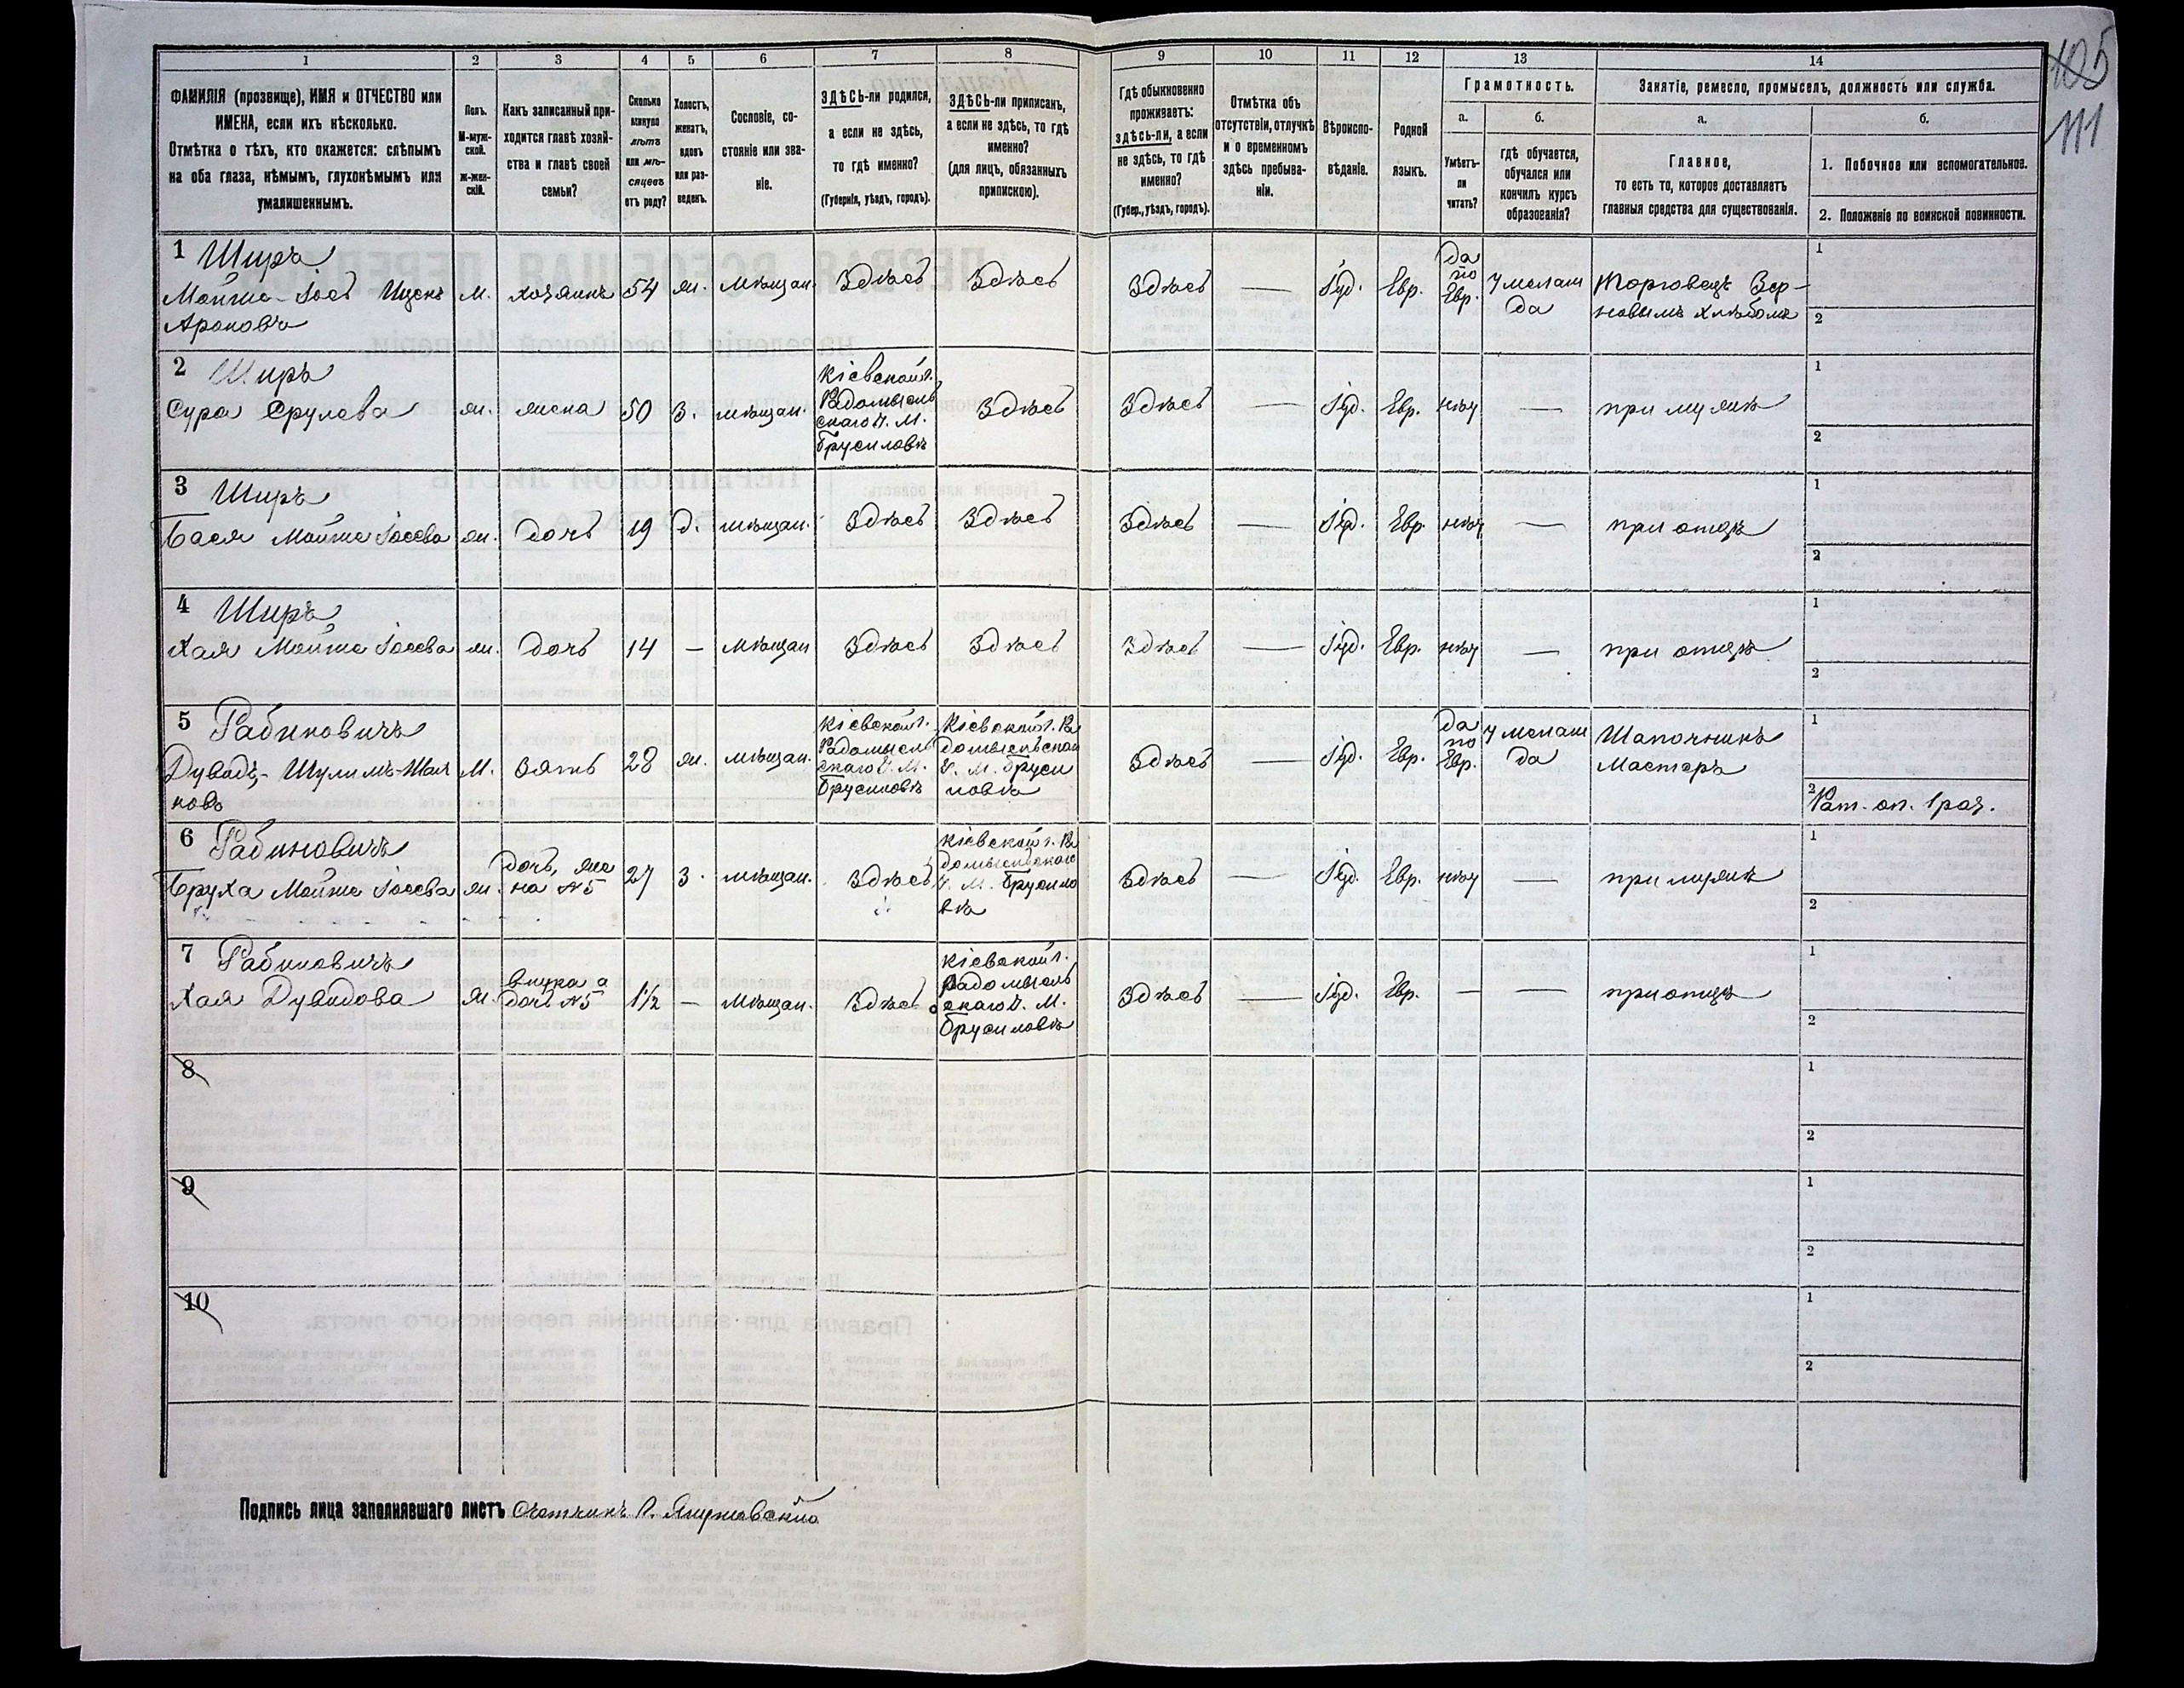 105
111
1
2
3
4
5
6
7
8
9
10
11
12
13
14
ФАМИЛІЯ (прозвище), ИМЯ и ОТЧЕСТВО или
ИМЕНА, если ихъ нѣсколько.
Отмѣтка о тѣхъ, кто окажется: слѣпымъ
на оба глаза, нѣмымъ, глухонѣмымъ или
умалишеннымъ.
Полъ.
М-муж-
ской.
Ж-жен-
скій.
Какъ записанный при-
ходится главѣ хозяй-
ства и главѣ своей
семьи?
Сколько
минуло
лѣтъ
или мѣ-
сяцевъ
отъ роду?
Холостъ,
женатъ,
вдовъ
или раз-
веденъ.
Сословіе, со-
стояніе или зва-
ніе.
ЗДѢСЬ-ли родился,
а если не здѣсь,
то гдѣ именно?
(Губернія, уѣздъ, городъ).
ЗДѢСЬ-ли приписанъ,
а если не здѣсь, то гдѣ
именно?
(для лицъ, обязанныхъ
припискою).
Гдѣ обыкновенно
проживаетъ:
здѣсь-ли, а если
не здѣсь, то гдѣ
именно?
(Губер., уѣздъ, городъ).
Отмѣтка объ
отсутствіи, отлучкѣ
и о временномъ
здѣсь пребыва-
ніи.
Вѣроиспо-
вѣданіе.
Родной
языкъ.
Грамотность.
а.
Умѣетъ-
ли
читать?
б.
гдѣ обучается,
обучался или
кончилъ курсъ
образованія?
Занятіе, ремесло, промыселъ, должность или служба.
а.
Главное,
то есть то, которое доставляетъ
главныя средства для существованія.
б.
1. Побочное или вспомогательное.
2. Положеніе по воинской повинности.
1 Ширъ
Мойше-Іось Ицекъ
Ароновъ
м.
хозяинъ
54
ж.
мѣщан.
Здѣсь
Здѣсь
Здѣсь
—
Іуд.
Евр.
да
по
Евр.
У мелам
да
Торговецъ Зер-
новымъ хлѣбомъ
1
2
2 Ширъ
Сура Срулева
ж.
жена
50
З.
мѣщан.
Кіевской г.
Радомысль
скаго У. М.
Брусиловѣ
Здѣсь
Здѣсь
—
Іуд.
Евр.
нѣт
—
при мужѣ
1
2
3 Ширъ
Бася Мойше Іосева
ж.
дочь
19
д.
мѣщан.
Здѣсь
Здѣсь
Здѣсь
—
Іуд.
Евр.
нѣт
—
при отцѣ
1
2
4 Ширъ
Хая Мойше Іосева
ж.
дочь
14
—
Мѣщан
Здѣсь
Здѣсь
Здѣсь
—
Іуд.
Евр.
нѣт
—
при отцѣ
1
2
5 Рабиновичъ
Дувидъ-Шулимъ-Шая
новъ
М.
Зять
28
ж.
мѣщан.
Кіевской г.
Радомысль
скаго У. М.
Брусиловѣ
Кіевской г. Ра
домысльскаго
У. М. Бруси
ловѣ
Здѣсь
—
Іуд.
Евр.
да
по
Евр.
У мелам
да
Шапочникъ
Мастеръ
1
2
Рат. оп. 1 раз.
6 Рабиновичъ
Бруха Мойше Іосева
ж.
дочь, же
на №5
27
З.
мѣщан.
Здѣсь
Кіевской г. Ра
домысльскаго
У. М. Брусило
вѣ
Здѣсь
—
Іуд.
Евр.
нѣт
—
при мужѣ
1
2
7 Рабиновичъ
Хая Дувидова
ж.
внука а
дочь №5
1½
—
Мѣщан.
Здѣсь
Кіевской г.
Радомысль
скаго У. М.
Брусиловѣ
Здѣсь
—
Іуд.
Евр.
—
—
при отцѣ
1
2
8
1
2
9
1
2
10
1
2
Подпись лица заполнявшаго листъ Счетчикъ